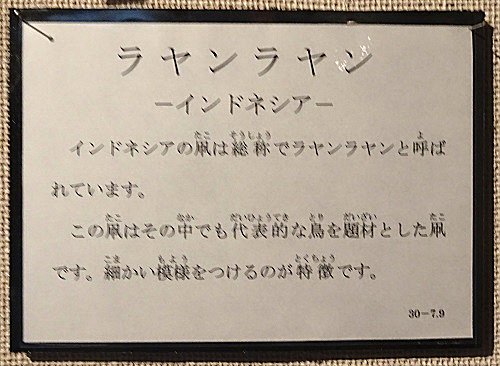 ラヤンラヤン
－インドネシア－
インドネシアの凧は総称でラヤンラヤンと呼ば
れています。
この凧はその中でも代表的な鳥を題材とした凧
です。細かい模様をつけるのが特徴です。
30－7.9